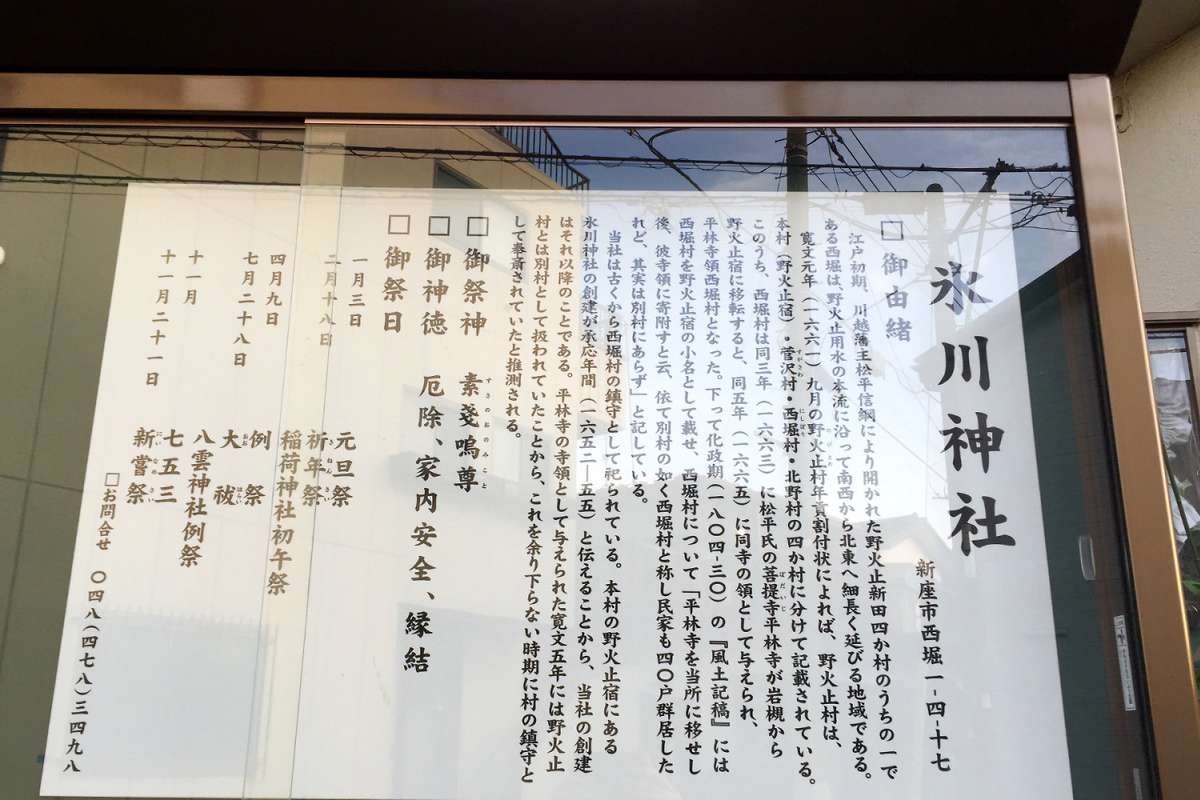 氷川神社
新座市西堀一-四-十七
□御由緒
江戸初期、川越藩主松平信綱により開かれた野火止新田四か村のうちの一で
ある西堀は、野火止用水の本流に沿って南西から北東へ細長く延びる地域である。
寛文元年（一六六一）九月の野火止村年貢割付状によれば、野火止村は、
本村（野火止宿）・菅沢村・西堀村・北野村の四か村に分けて記載されている。
このうち、西堀村は同三年（一六六三）に松平氏の菩提寺平林寺が岩槻から
野火止宿に移転すると、同五年（一六六五）に同寺の領として与えられ、
平林寺領西堀村となった。下って化政期（一八〇四-三〇）の『風土記稿』には
西堀村を野火止宿の小名として載せ、西堀村について「平林寺を当所に移せし
後、彼寺領に寄附すと云、依て別村の如く西堀村と称し民家も四〇戸群居した
れど、其実は別村にあらず」と記している。
当社は古くから西堀村の鎮守として祀られている。本村の野火止宿にある
氷川神社の創建が承応年間（一六五二―五五）と伝えることから、当社の創建
はそれ以降のことである。平林寺の寺領として与えられた寛文五年には野火止
村とは別村として扱われていたことから、これを余り下らない時期に村の鎮守と
して奉斎されていたと推測される。
□御祭神 素戔嗚尊
□御神徳 厄除、家内安全、縁結
□御祭日
一月三日 元旦祭
二月十八日 祈年祭
稲荷神社初午祭
四月九日 例祭
七月二十八日 大祓
八雲神社例祭
十一月 七五三
十一月二十一日 新嘗祭
□お問合せ 〇四八（四七八）三四九八